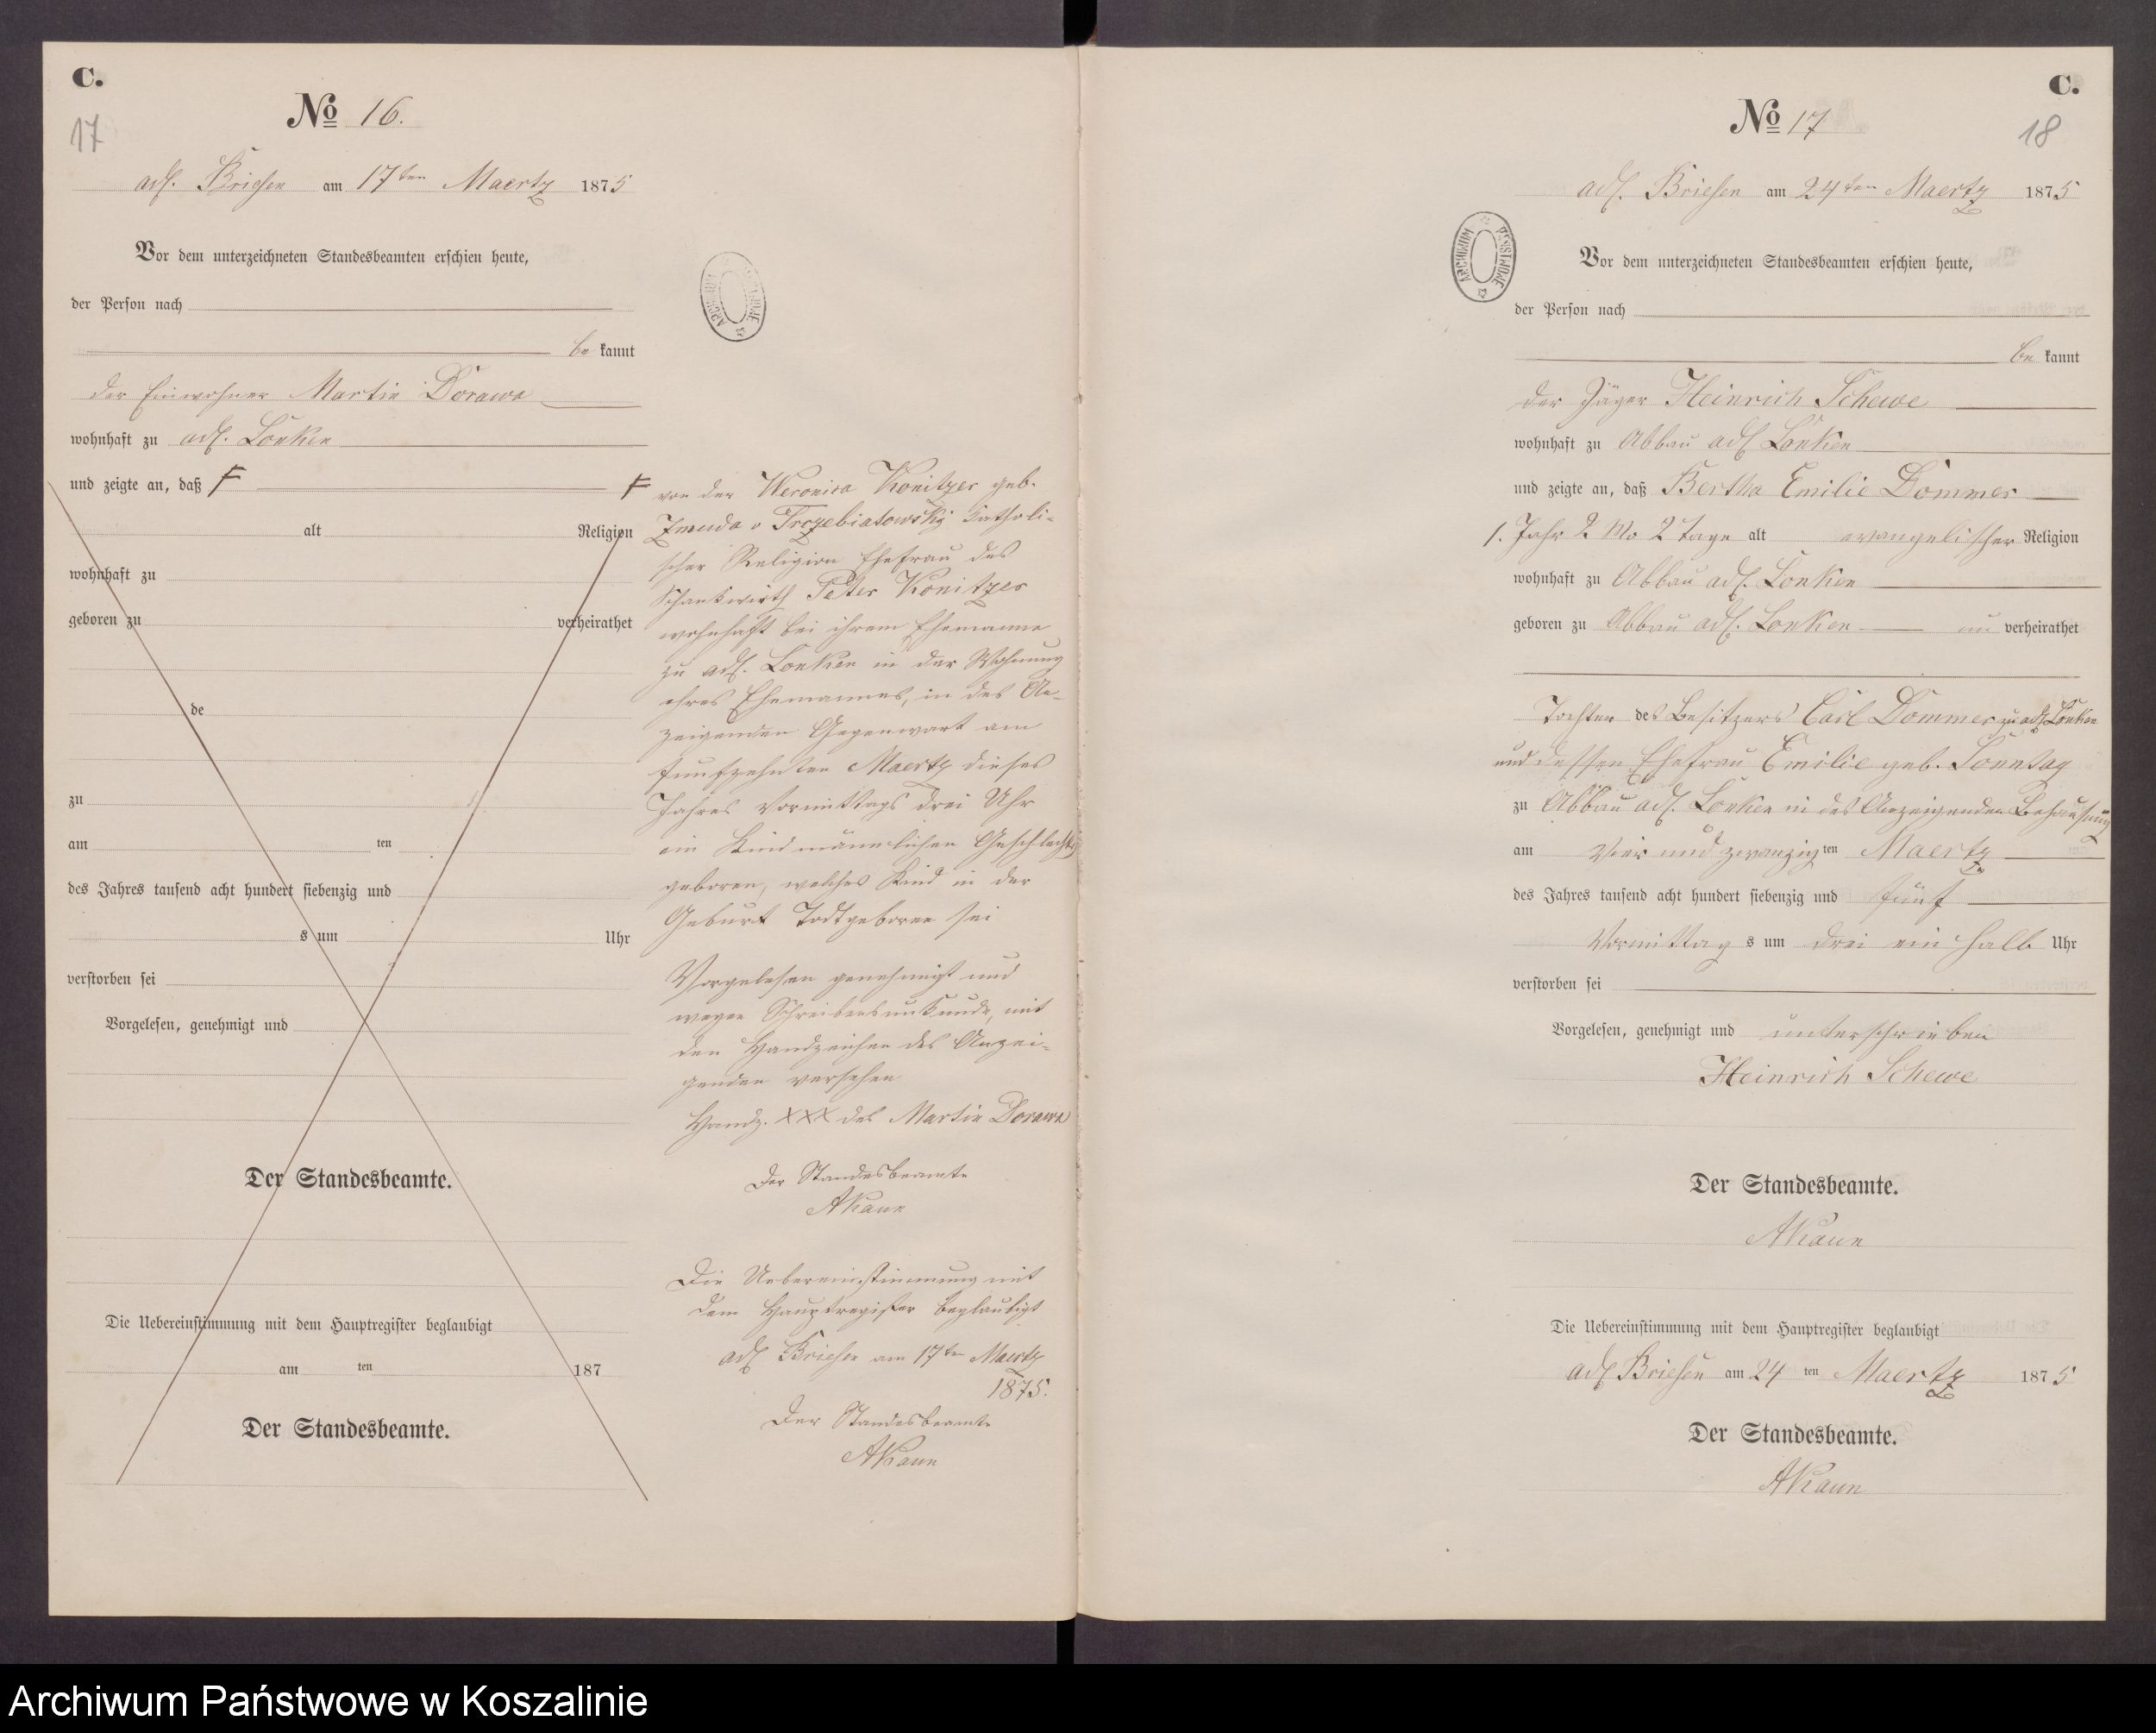 C.
17
No 16.
adl. Briesen am 17ten Maertz 1875
Vor dem unterzeichneten Standesbeamten erschien heute,
der Person nach
be kannt
der Einwohner Martin Dorawa
wohnhaft zu adl. Lonken
und zeigte an, daß F
alt Religion
wohnhaft zu
geboren zu verheirathet
de
zu
am ten
des Jahres tausend acht hundert siebenzig und
s um Uhr
verstorben sei
Vorgelesen, genehmigt und
Der Standesbeamte.
Die Uebereinstimmung mit dem Hauptregister beglaubigt
am ten 187
Der Standesbeamte.
ARCHIWUM
F von der Weronica Konitzer geb.
Zmuda v Trzebiatowsky Katholi-
scher Religion Ehefrau des
Schankwirth Peter Konitzer
wohnhaft bei ihrem Ehemanne
zu adl. Lonken in der Wohnung
ihres Ehemannes, in des An-
zeigenden Gegenwart am
fünfzehnten Maertz dieses
Jahres Vormittags drei Uhr
ein Kind männlichen Geschlechts
geboren, welches Kind in der
Geburt Todtgeboren sei
Vorgelesen genehmigt und
wegen Schreibensunkunde, mit
den Handzeichen des Anzei-
genden versehen
Handz. XXX des Martin Dorawa
Der Standesbeamte
AKaun
Die Uebereinstimmung mit
dem Hauptregister beglaubigt
adl Briesen am 17ten Maertz
1875.
Der Standesbeamte
AKaun
C.
18
No 17
adl. Briesen am 24ten Maertz 1875
ARCHIWUM PAŃSTWOWE
Vor dem unterzeichneten Standesbeamten erschien heute,
der Person nach
be kannt
der Jäger Heinrich Schewe
wohnhaft zu Abbau adl Lonken
und zeigte an, daß Bertha Emilie Dommer
1. Jahr 2 Mo 2 Tage alt evangelischer Religion
wohnhaft zu Abbau adl. Lonken
geboren zu Abbau adl. Lonken un verheirathet
Tochter des Besitzers Carl Dommer zu adl Lonken
und dessen Ehefrau Emilie geb. Sonntag
zu Abbau adl. Lonken in des Anzeigenden Behausung
am Vier und zwanzig ten Maertz
des Jahres tausend acht hundert siebenzig und fünf
Vormittag s um drei ein halb Uhr
verstorben sei
Vorgelesen, genehmigt und unterschrieben
Heinrich Schewe
Der Standesbeamte.
AKaun
Die Uebereinstimmung mit dem Hauptregister beglaubigt
adl Briesen am 24 ten Maertz 1875
Der Standesbeamte.
AKaun
Archiwum Państwowe w Koszalinie